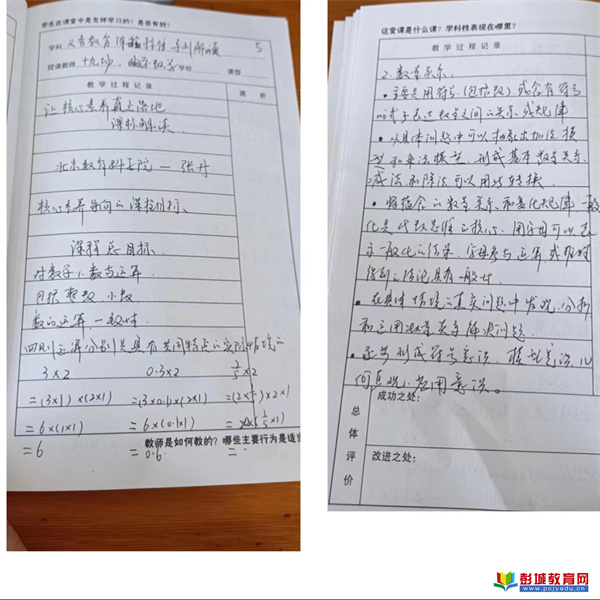 学生在课堂中是怎样学习的？是否有效？
学科 义务教育课程标准系列解读 5
授课教师 小学数学 学校 课型
教学过程记录 简析
让核心素养真正落地
课标解读
北京教育科学院 — 张丹
核心素养导向的课程标准
课程总目标
对数学小数与运算
包括 整数 小数
数的运算 一致性
四则运算分别是具有共同特点的实际情境的
3×2 0.3×2 ×2
=(3×1)×(2×1) =(3×0.1)×(2×1)
=6×(1×1) =6×(0.1×1)
=6 =0.6 =
教师是如何教的？哪些主要行为是适
这堂课是什么课？学科性表现在哪里？
教学过程记录
2. 数量关系
·主要是用符号(包括数)或含有符号
的式子表达数量之间的关系或规律
·从具体问题中可以抽象出加法模
型和乘法模型，形成基本数量关系，
减法和除法可以用此转换
·将蕴含的数量关系和变化规律一般
化是代数思维的核心，用字母可以表
示一般化的结果，字母参与运算或推理
得到的结论具有一般性
·在具体情境的真实问题中发现、分析
和运用数量关系解决问题
·逐步形成符号意识、模型意识、几
何直观、应用意识。
总体评价
成功之处：
改进之处：
彭城教育网
www.pcjyedu.cn